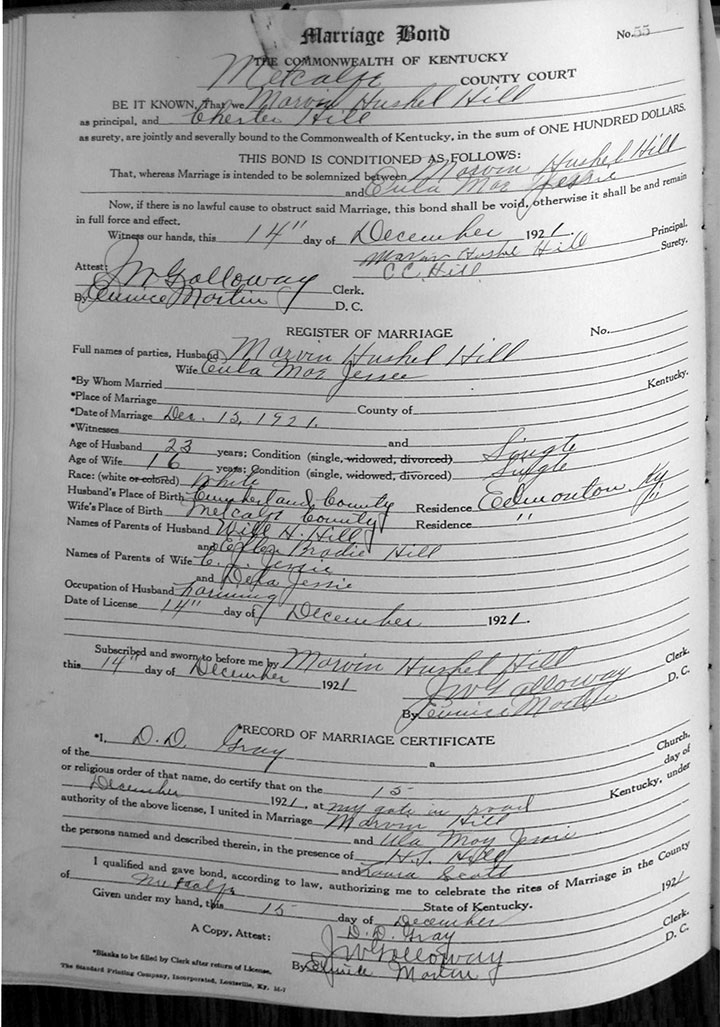 Marriage Bond No. 55
THE COMMONWEALTH OF KENTUCKY
Metcalfe COUNTY COURT
BE IT KNOWN, That we Marvin Hushel Hill
as principal, and Chester Hill
as surety, are jointly and severally bound to the Commonwealth of Kentucky, in the sum of ONE HUNDRED DOLLARS.
THIS BOND IS CONDITIONED AS FOLLOWS:
That, whereas Marriage is intended to be solemnized between Marvin Hushel Hill
and Eula May Jessie
Now, if there is no lawful cause to obstruct said Marriage, this bond shall be void, otherwise it shall be and remain
in full force and effect.
Witness our hands, this 14" day of December 1921.
Marvin Hushel Hill Principal.
C.C. Hill Surety.
Attest:
JW Galloway Clerk.
By Eunice Martin D. C.
REGISTER OF MARRIAGE No.
Full names of parties, Husband Marvin Hushel Hill
Wife Eula May Jessee
*By Whom Married
*Place of Marriage Kentucky.
*Date of Marriage Dec. 15, 1921. County of
*Witnesses and
Age of Husband 23 years; Condition (single, widowed, divorced) Single
Age of Wife 16 years; Condition (single, widowed, divorced) Single
Race: (white or colored) White
Husband's Place of Birth Cumberland County Residence Edmonton, Ky
Wife's Place of Birth Metcalfe County Residence " "
Names of Parents of Husband Will H. Hill
and Ellen Brodie Hill
Names of Parents of Wife Jessie
and Della Jessie
Occupation of Husband Farming
Date of License 14" day of December 1921.
Subscribed and sworn to before me by Marvin Hushel Hill
this 14" day of December 1921
JW Galloway Clerk.
By Eunice Martin D. C.
*RECORD OF MARRIAGE CERTIFICATE
*I, D. D. Gray a
of the Church,
or religious order of that name, do certify that on the 15 day of
December 1921, at my gate in road Kentucky, under
authority of the above license, I united in Marriage Marvin Hill
and Ula May Jessie
the persons named and described therein, in the presence of H.T. Hill
and Laura Scott
I qualified and gave bond, according to law, authorizing me to celebrate the rites of Marriage in the County
of Metcalfe State of Kentucky.
Given under my hand, this 15 day of December 1921
D. D. Gray
A Copy, Attest: JW Galloway Clerk.
By Eunice Martin D. C.
*Blanks to be filled by Clerk after return of License.
The Standard Printing Company, Incorporated, Louisville, Ky.